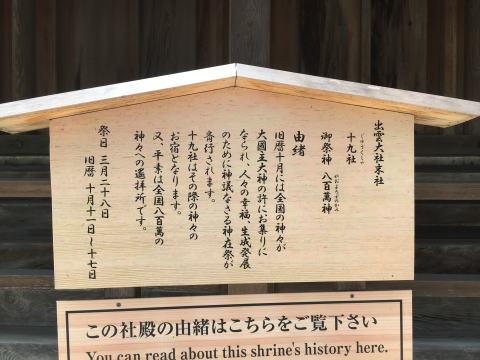 出雲大社末社
十九社
御祭神 八百萬神
由緒
旧暦十月には全国の神々が
大國主大神の許にお集りに
なられ、人々の幸福、生成発展
のために神議なさる神在祭が
斎行されます。
十九社はその際の神々の
お宿となります。
又、平素は全国八百萬の
神々への遥拝所です。
祭日 三月二十八日
旧暦 十月十一日〜十七日
この社殿の由緒はこちらをご覧下さい
You can read about this shrine's history here.